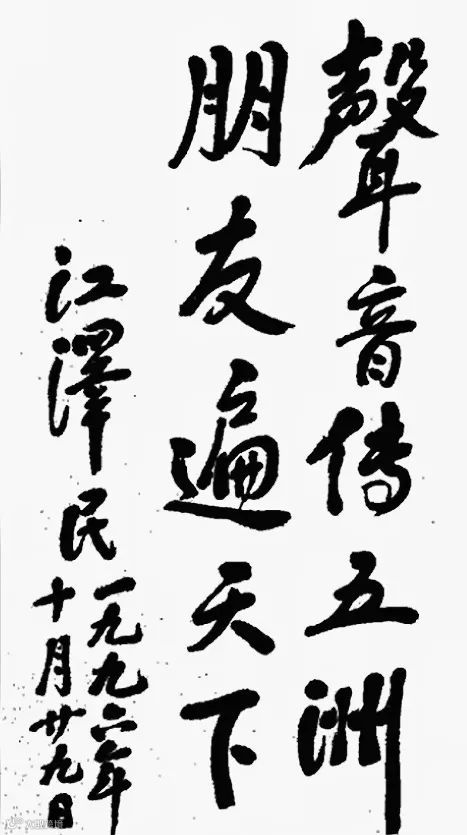 聲音傳五洲
朋友遍天下
江澤民
一九九六年
十月廿九日